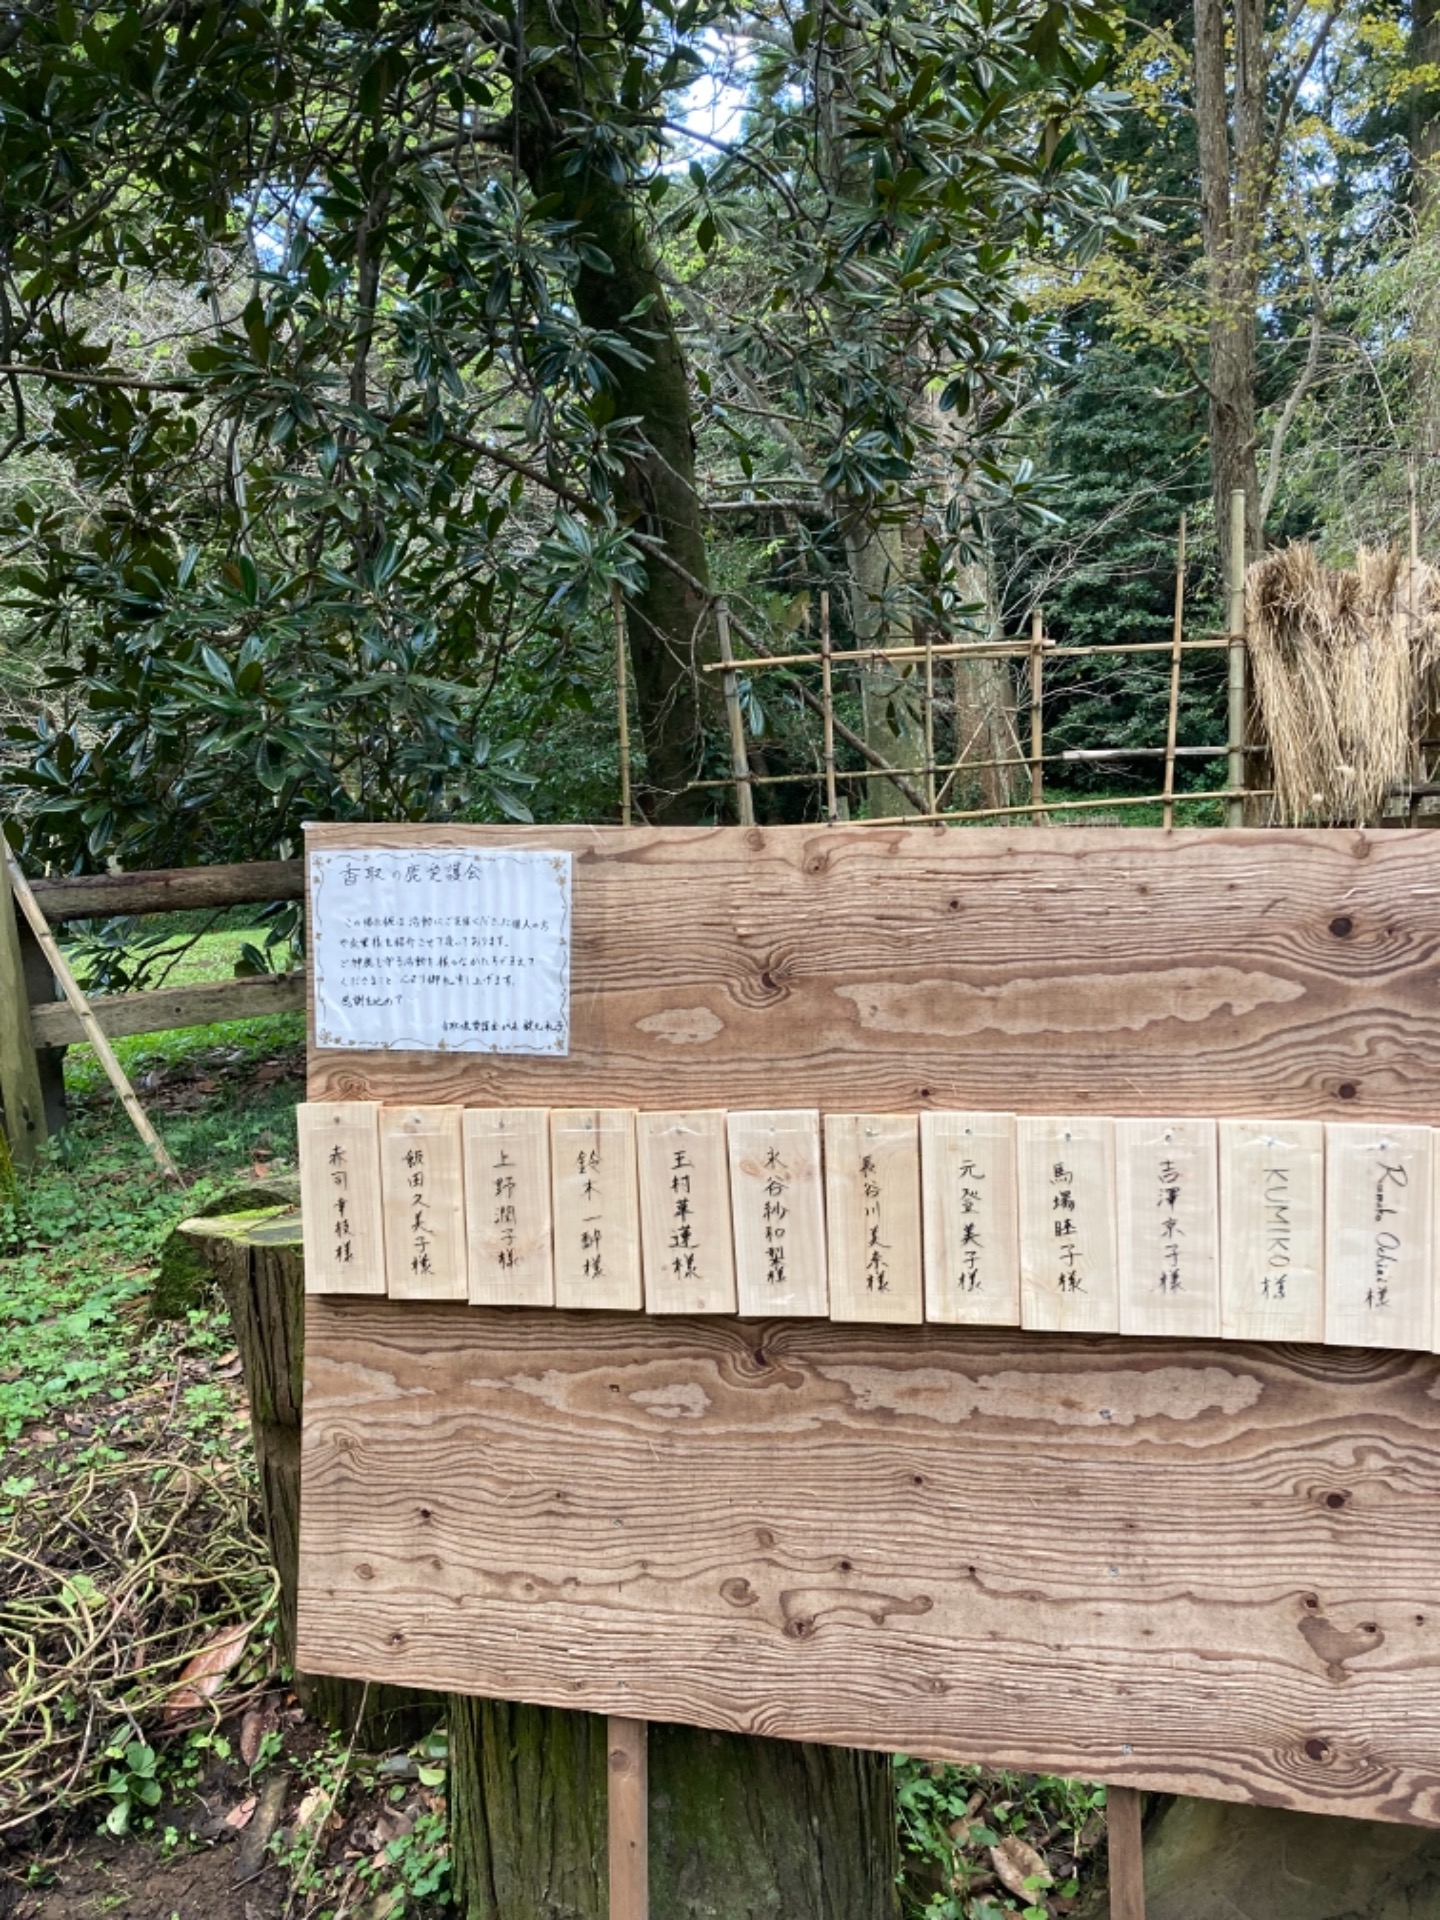 香取の鹿愛護会
この掲示板は活動にご支援くださった個人の方
や企業様を紹介させて頂いております。
ご神鹿を守る活動を様々なかたちで支えて
くださること 心より御礼申し上げます。
感謝を込めて
香取鹿愛護会 代表
赤司幸枝様
飯田久美子様
上野潤子様
鈴木一酔様
玉村華蓮様
水谷紗和梨様
長谷川美奈様
元登美子様
馬場胚子様
吉澤京子様
KUMIKO様
Rumiko Ochiai様